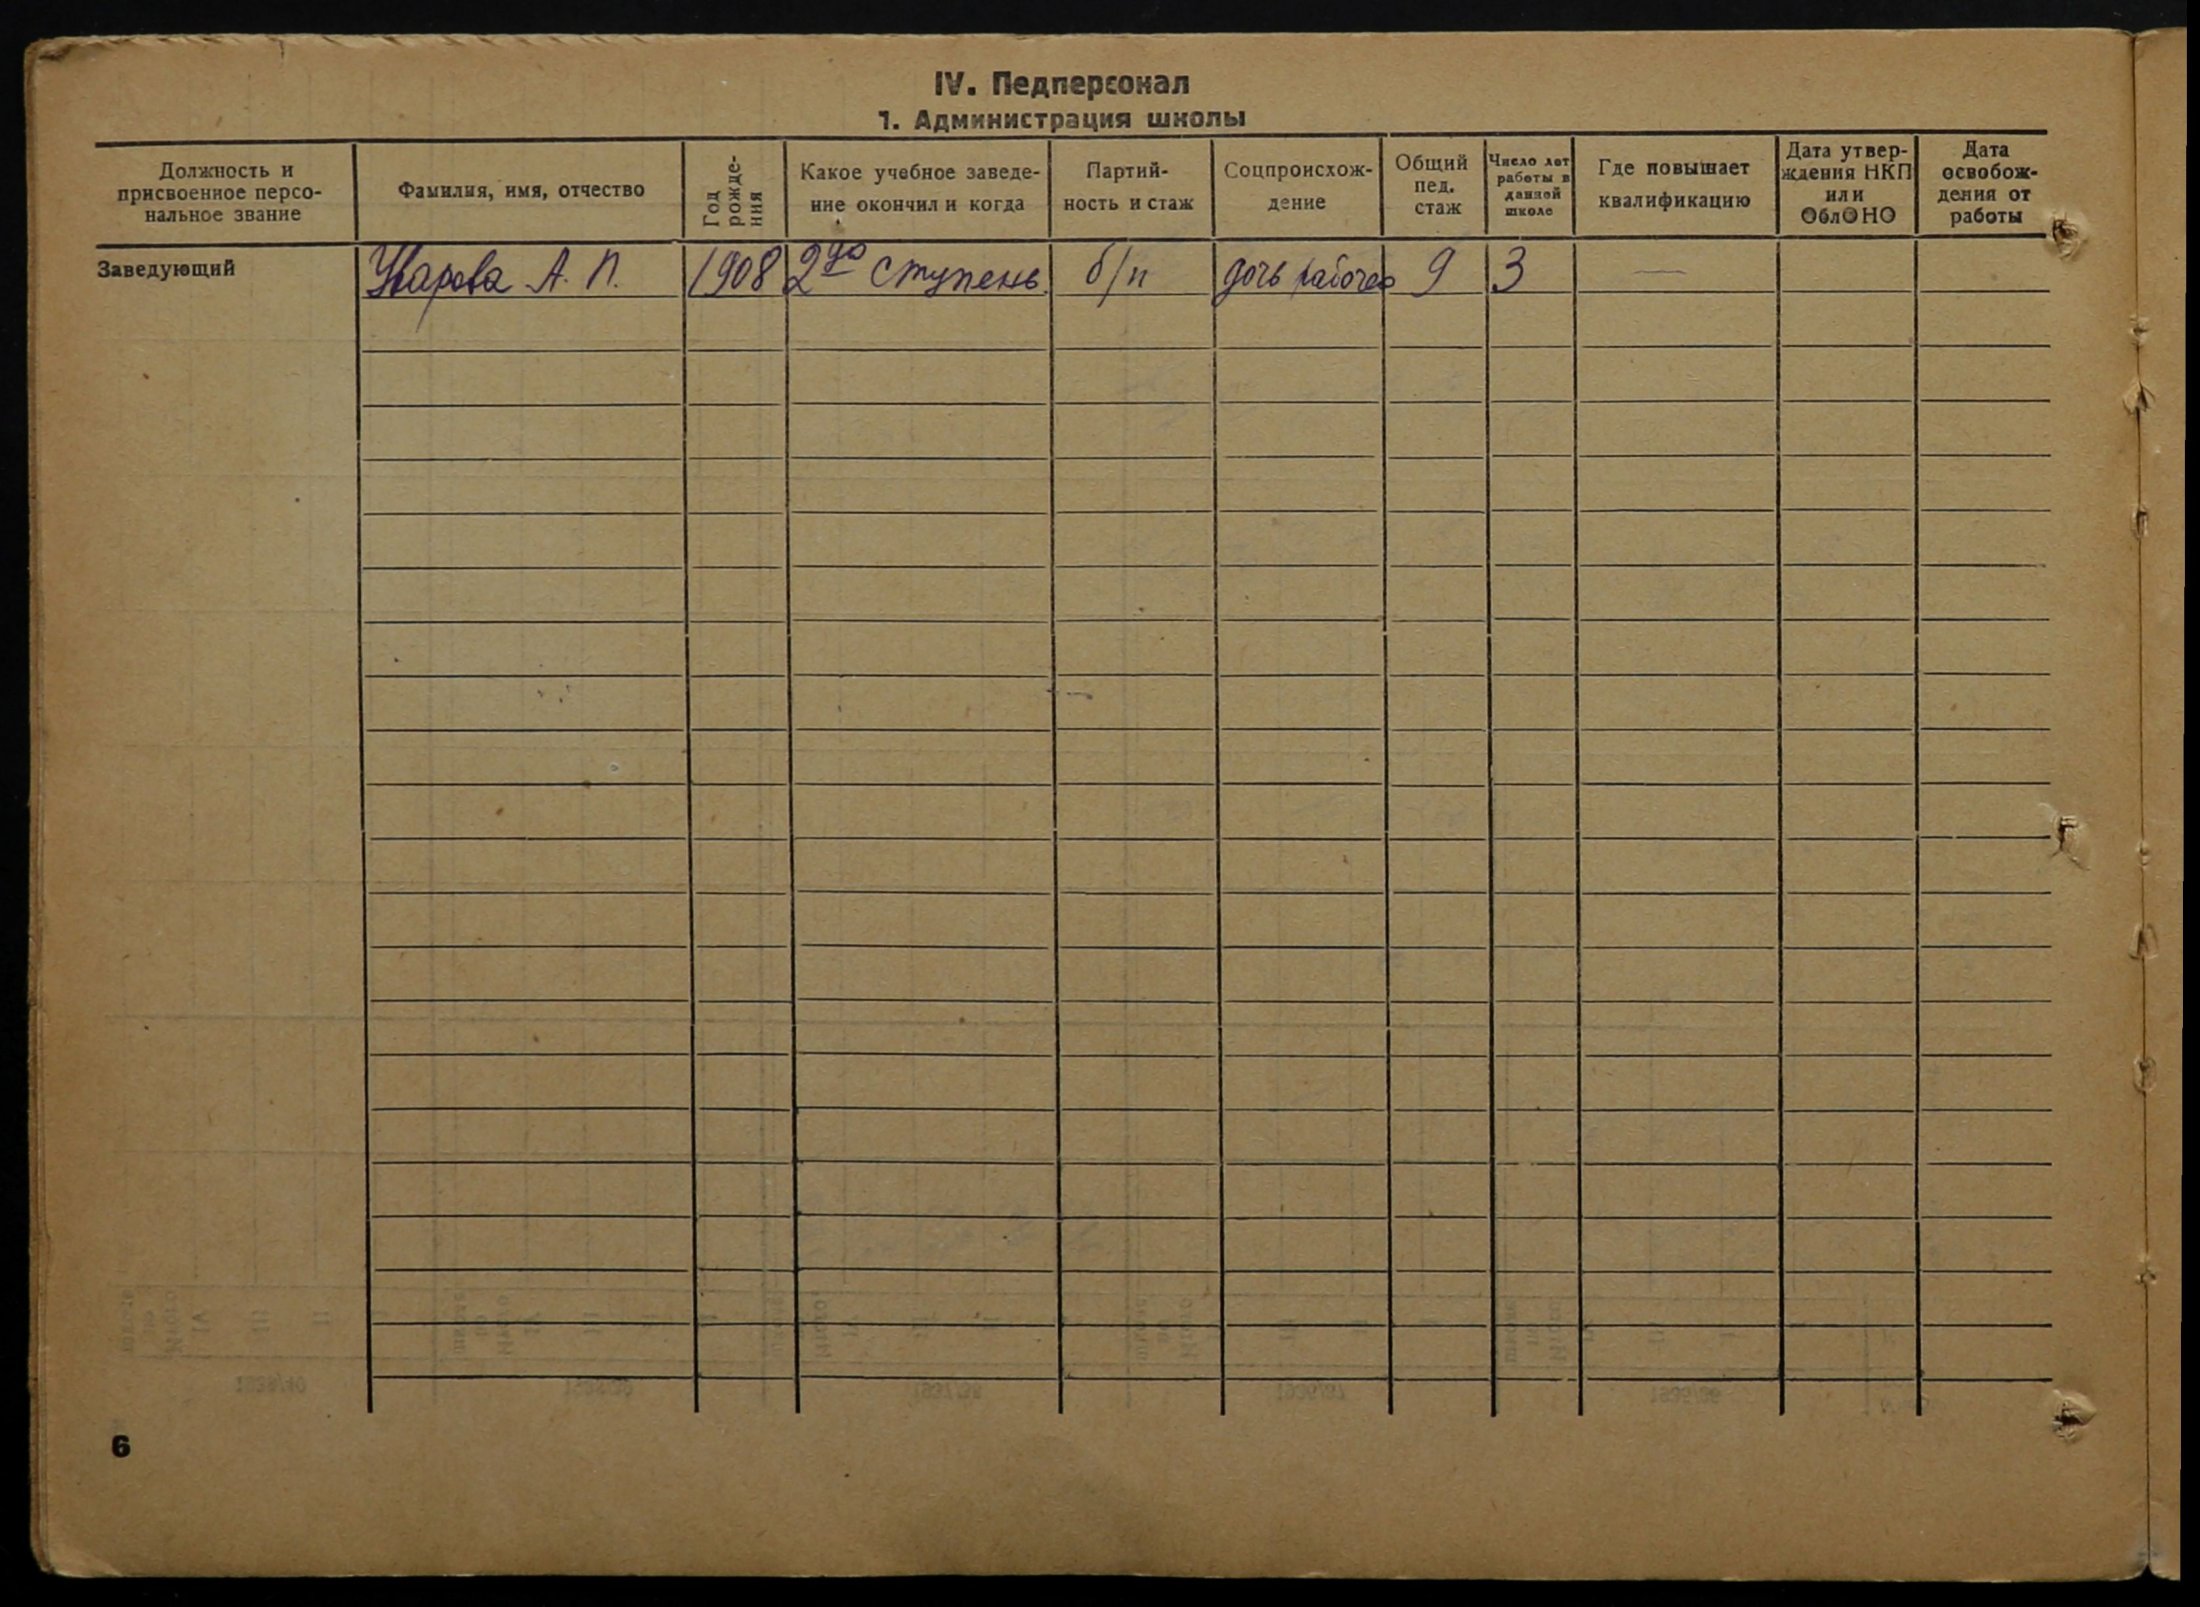 IV. Педперсонал
1. Администрация школы
Должность и
присвоенное персо-
нальное звание
Фамилия, имя, отчество
Год
рожде-
ния
Какое учебное заведе-
ние окончил и когда
Партий-
ность и стаж
Соцпроисхож-
дение
Общий
пед.
стаж
Число лет
работы в
данной
школе
Где повышает
квалификацию
Дата утвер-
ждения НКП
или
ОблОНО
Дата
освобож-
дения от
работы
Заведующий
Уварова А. П.
1908
2ую ступень
б/п
дочь рабочего
9
3
—
6